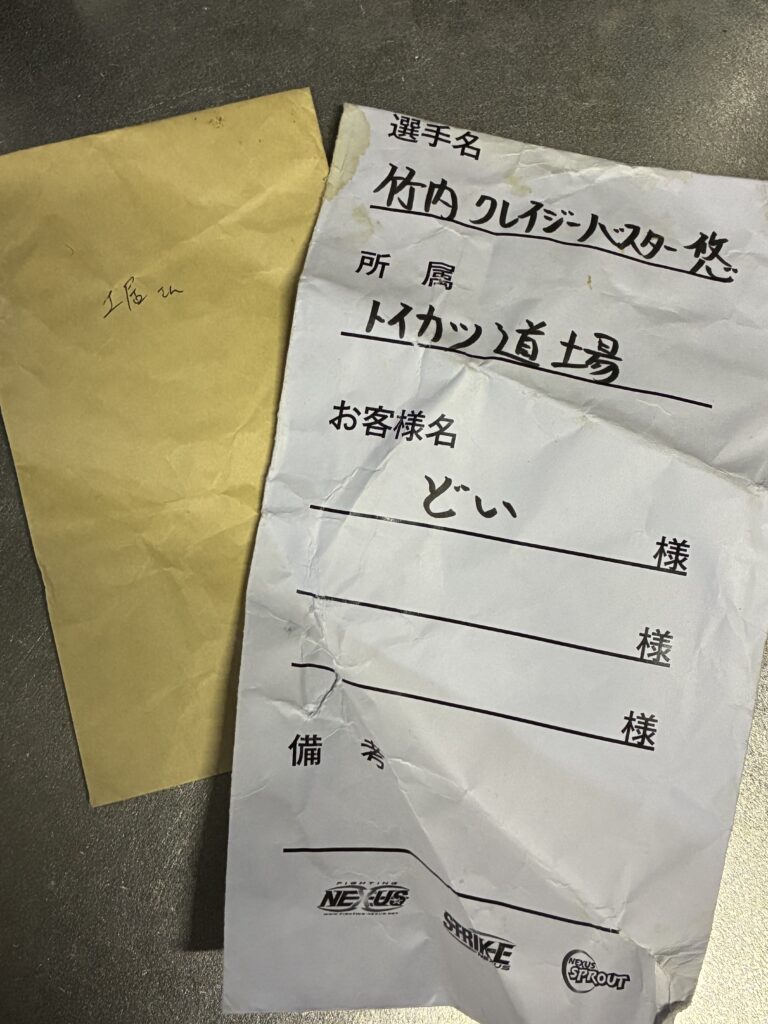 土居さん
選手名
竹内 クレイジーバスター 悠
所属
トイカツ道場
お客様名
どい 様
様
様
備考
FIGHTING
NEXUS
WWW.FIGHTING-NEXUS.NET
STRIKE
NEXUS
NEXUS
SPROUT